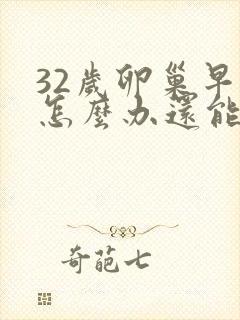 32歲卵巢早
怎麼办還能
奇葩七